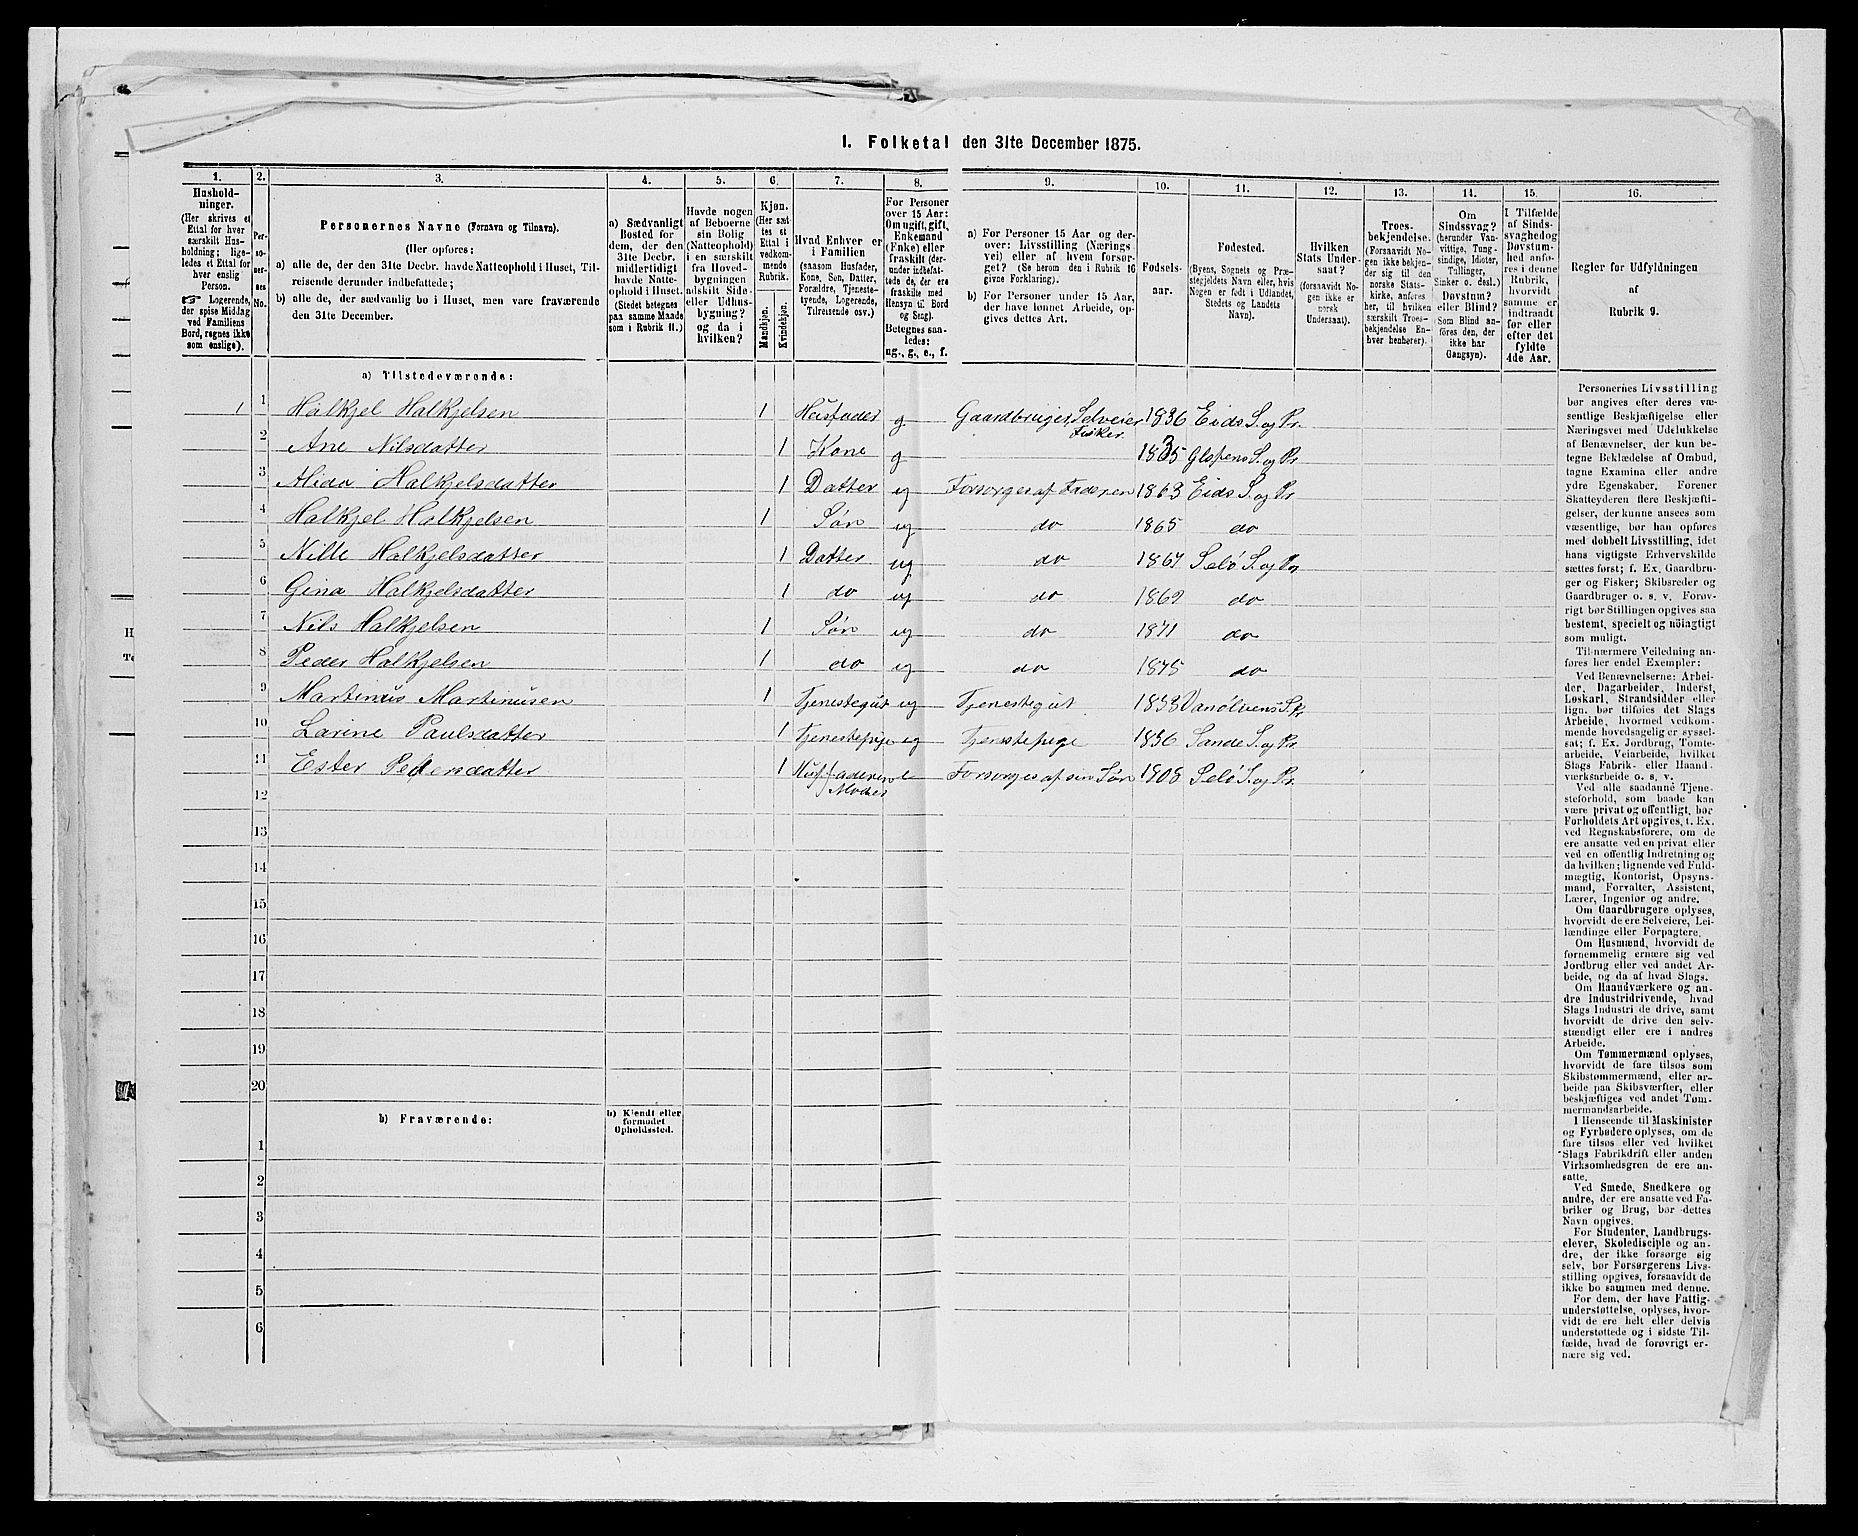 I. Folketal den 31te December 1875.
1. 2. 3. 4. 5. 6. 7. 8. 9. 10. 11. 12. 13. 14. 15. 16.
Hushold-
ninger.
(Her skrives et
Ettal for hver
særskilt Hus-
holdning; lige-
ledes et Ettal for
hver enslig
Person.
☛ Logerende,
der spise Middag
ved Familiens
Bord, regnes ikke
som enslige).
Per-
so-
ner-
nes
No.
Personernes Navne (Fornavn og Tilnavn).
(Her opføres:
a) alle de, der den 31te Decbr. havde Natteophold i Huset, Til-
reisende derunder indbefattede;
b) alle de, der sædvanlig bo i Huset, men vare fraværende
den 31te December.
a) Sædvanligt
Bosted for
dem, der den
31te Decbr.
midlertidigt
havde Natte-
ophold i Huset.
(Stedet betegnes
paa samme Maade
som i Rubrik 11.)
Havde nogen
af Beboerne
sin Bolig
(Natteophold)
i en særskilt
fra Hoved-
bygningen
adskilt Side-
eller Udhus-
bygning?
og da i
hvilken?
Kjøn.
(Her sæt-
tes et
Ettal i
vedkom-
mende
Rubrik.
Mandkjøn.
Kvindekjøn.
Hvad Enhver er
i Familien
(saasom Husfader,
Kone, Søn, Datter,
Forældre, Tjeneste-
tyende, Logerende,
Tilreisende osv.)
For Personer
over 15 Aar:
Om ugift, gift,
Enkemand
(Enke) eller
fraskilt (der-
under indbefat-
tede de, der ere
fraskilte med
Hensyn til Bord
og Seng).
Betegnes saa-
ledes:
ug., g., e., f.
a) For Personer 15 Aar og der-
over: Livsstilling (Nærings-
vei) eller af hvem forsør-
get? (Se herom den i Rubrik 16
givne Forklaring).
b) For Personer under 15 Aar,
der have lønnet Arbeide, op-
gives dettes Art.
Fødsels-
aar.
Fødested.
(Byens, Sognets og Præ-
stegjeldets Navn eller, hvis
Nogen er født i Udlandet,
Stedets og Landets
Navn).
Hvilken
Stats Under-
saat?
(forsaavidt No-
gen ikke er
norsk
Undersaat).
Troes-
bekjendelse.
(Forsaavidt No-
gen ikke bekjen-
der sig til den
norske Stats-
kirke, anføres
her, til hvilken
særskilt Troes-
bekjendelse En-
hver henhører).
Om
Sindssvag?
(herunder Van-
vittige, Tung-
sindige, Idioter,
Tullinger,
Sinker o. desl.)
Døvstum?
eller Blind?
(Som Blind an-
føres den, der
ikke har
Gangsyn).
I Tilfælde
af Sinds-
svaghed og
Døvstum-
hed anfø-
res i denne
Rubrik,
hvorvidt
samme er
indtraadt
før eller
efter det
fyldte
4de Aar.
Regler for Udfyldningen
af
Rubrik 9.
a) Tilstedeværende:
1 1 Halkjel Halkjelsen 1 Husfader g Gaardbruger, Selveier Fisker 1836 Eids S. og Pr.
2 Ane Nilsdatter 1 Kone g 1835 S. og Pr
3 Alida Halkjelsdatter 1 Datter ug Forsørges af Faderen 1863 Eids S. og Pr
4 Halkjel Halkjelsen 1 Søn ug do 1865 do
5 Halkjelsdatter 1 Datter ug do 1867 Selø S. og Pr
6 Gina Halkjelsdatter 1 do ug do 1869 do
7 Nils Halkjelsen 1 Søn ug do 1871 do
8 Peder Halkjelsen 1 do ug do 1875 do
9 Martinus Martinusen 1 Tjenestegut ug Tjenestegut Vanølvens S. Pr
10 Larine Paulsdatter 1 Tjenestepige ug Tjenestepige 1856 Sande S. og Pr.
11 Ester Pedersdatter 1 Husfaderens Moder e Forsørges af sin Søn 1808 Selø S. og Pr.
12
13
14
15
16
17
18
19
20
b) Fraværende:
b) Kjendt eller
formodet
Opholdssted.
1
2
3
4
5
6
Personernes Livsstilling
bør angives efter deres væ-
sentlige Beskjæftigelse eller
Næringsvei med Udelukkelse
af Benævnelser, der kun be-
tegne Beklædelse af Ombud,
tagne Examina eller andre
ydre Egenskaber. Forener
Skatteyderen flere Beskjæfti-
gelser, der kunne ansees som
væsentlige, bør han opføres
med dobbelt Livsstilling, idet
hans vigtigste Erhvervskilde
sættes først; f. Ex. Gaardbru-
ger og Fisker; Skibsreder og
Gaardbruger o. s. v. Forøv-
rigt bør Stillingen opgives saa
bestemt, specielt og nöiagtigt
som muligt.
Til nærmere Veiledning an-
føres her endel Exempler:
Ved Benævnelserne: Arbei-
der, Dagarbeider, Inderst,
Løskarl, Strandsidder eller
lign. bør tilføies det Slags
Arbeide, hvormed vedkom-
mende hovedsagelig er syssel-
sat; f. Ex. Jordbrug, Tomte-
arbeide, Veiarbeide, hvilket
Slags Fabrik- eller Haand-
værksarbeide o. s. v.
Ved alle saadanne Tjene-
steforhold, som baade kan
være privat og offentligt, bør
Forholdets Art opgives, t. Ex.
ved Regnskabsførere, om de
ere ansatte ved en privat eller
ved en offentlig Indretning og
da hvilken; lignende ved Fuld-
mægtig, Kontorist, Opsyns-
mand, Forvalter, Assistent,
Lærer, Ingeniør og andre.
Om Gaardbrugere oplyses,
hvorvidt de ere Selveiere, Lei-
lændinge eller Forpagtere.
Om Husmænd, hvorvidt de
fornemmelig ernære sig ved
Jordbrug eller ved andet Ar-
beide, og da af hvad Slags.
Om Haandværkere og an-
dre Industridrivende, hvad
Slags Industri de drive, samt
hvorvidt de drive den selv-
stændigt eller ere i andres
Arbeide.
Om Tømmermænd oplyses,
hvorvidt de fare tilsøs som
Skibstømmermænd, eller ar-
beide paa Skibsværfter, eller
beskjæftiges ved andet Tøm-
mermandsarbeide.
I Henseende til Maskinister
og Fyrbødere oplyses, om de
fare tilsøs eller ved hvilket
Slags Fabrikdrift eller anden
Virksomhedsgren de ere an-
satte.
Ved Smede, Snedkere og
andre, der ere ansatte ved Fa-
briker og Brug, bør dettes
Navn opgives.
For Studenter, Landbrugs-
elever, Skoledisciple og an-
dre, der ikke forsørge sig
selv, bør Forsørgerens Livs-
stilling opgives, forsaavidt de
ikke bo sammen med denne.
For dem, der have Fattig-
understøttelse, oplyses, hvor-
vidt de ere helt eller delvis
understøttede og i sidste Til-
fælde, hvad de forøvrigt er-
nære sig ved.